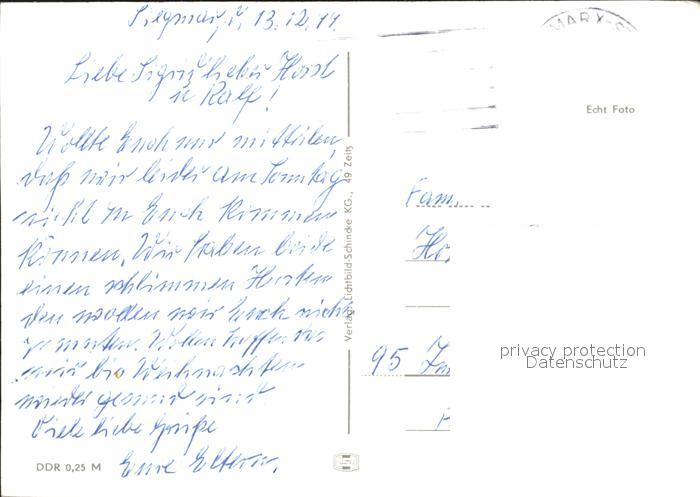 Siegmar, d. 13.12.71.
MARX-S
Liebe Sigrid lieber Horst
u Ralf!
Echt Foto
Wollte Euch nur mitteilen,
daß wir leider am Sonntag
nicht zu Euch kommen
können. Wir haben beide
einen schlimmen Husten
den wollen wir Euch nicht
zumuten. Wollen hoffen das
wir bis Weihnachten
wieder gesund sind
Viele liebe Grüße
Eure Eltern.
Verlag Lichtbild-Schincke KG., 49 Zeitz
Fam.
Ho
95 Zw
privacy protection
Datenschutz
DDR 0,25 M